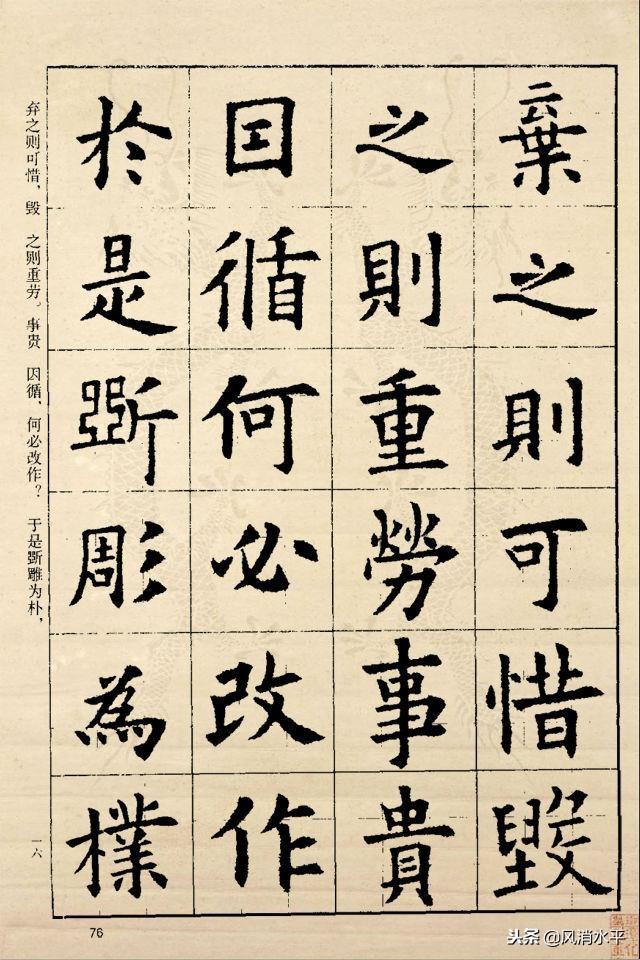 棄之則可惜毀
之則重勞事貴
因循何必改作
於是斲彫為樸
弃之则可惜，毁 之则重劳。事贵 因循，何必改作？ 于是斲雕为朴，
一六
76
头条@风消水平